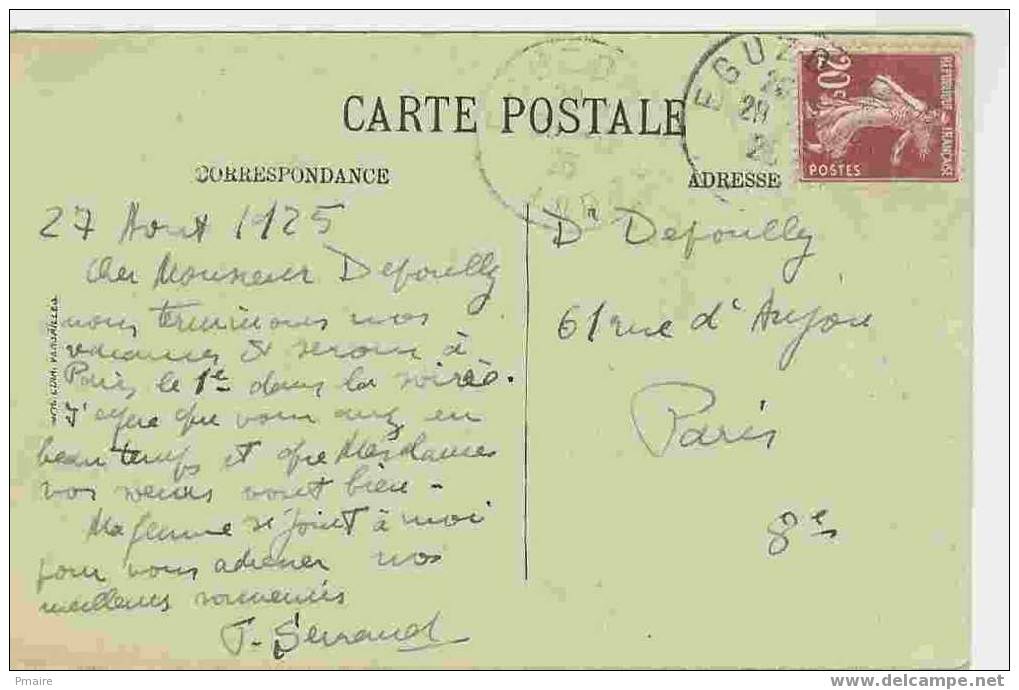 CARTE POSTALE
CORRESPONDANCE
ADRESSE
EGUZ
28
20c
REPUBLIQUE FRANÇAISE
POSTES
27 Aout 1925
Cher Monsieur Depouilly
nous terminons nos
vacances et serons à
Paris le 1e dans la soirée.
J'espère que vous avez eu
beau temps et que Mesdames
vos soeurs vont bien -
Ma femme se joint à moi
pour vous adresser nos
meilleurs souvenirs
J. Serraud
Dr Depouilly
61 rue d'Anjou
Paris
8e
Pmaire
www.delcampe.net